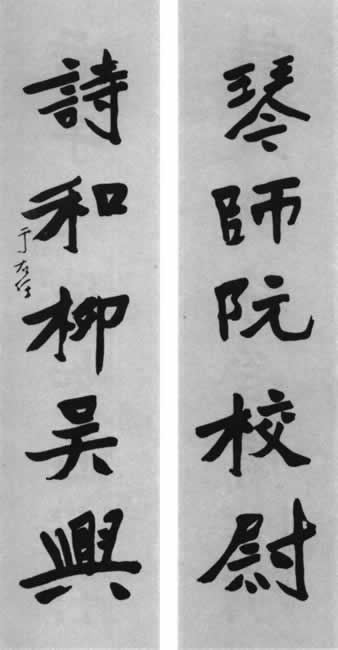 琴師阮校尉
詩和柳吳興
于右任